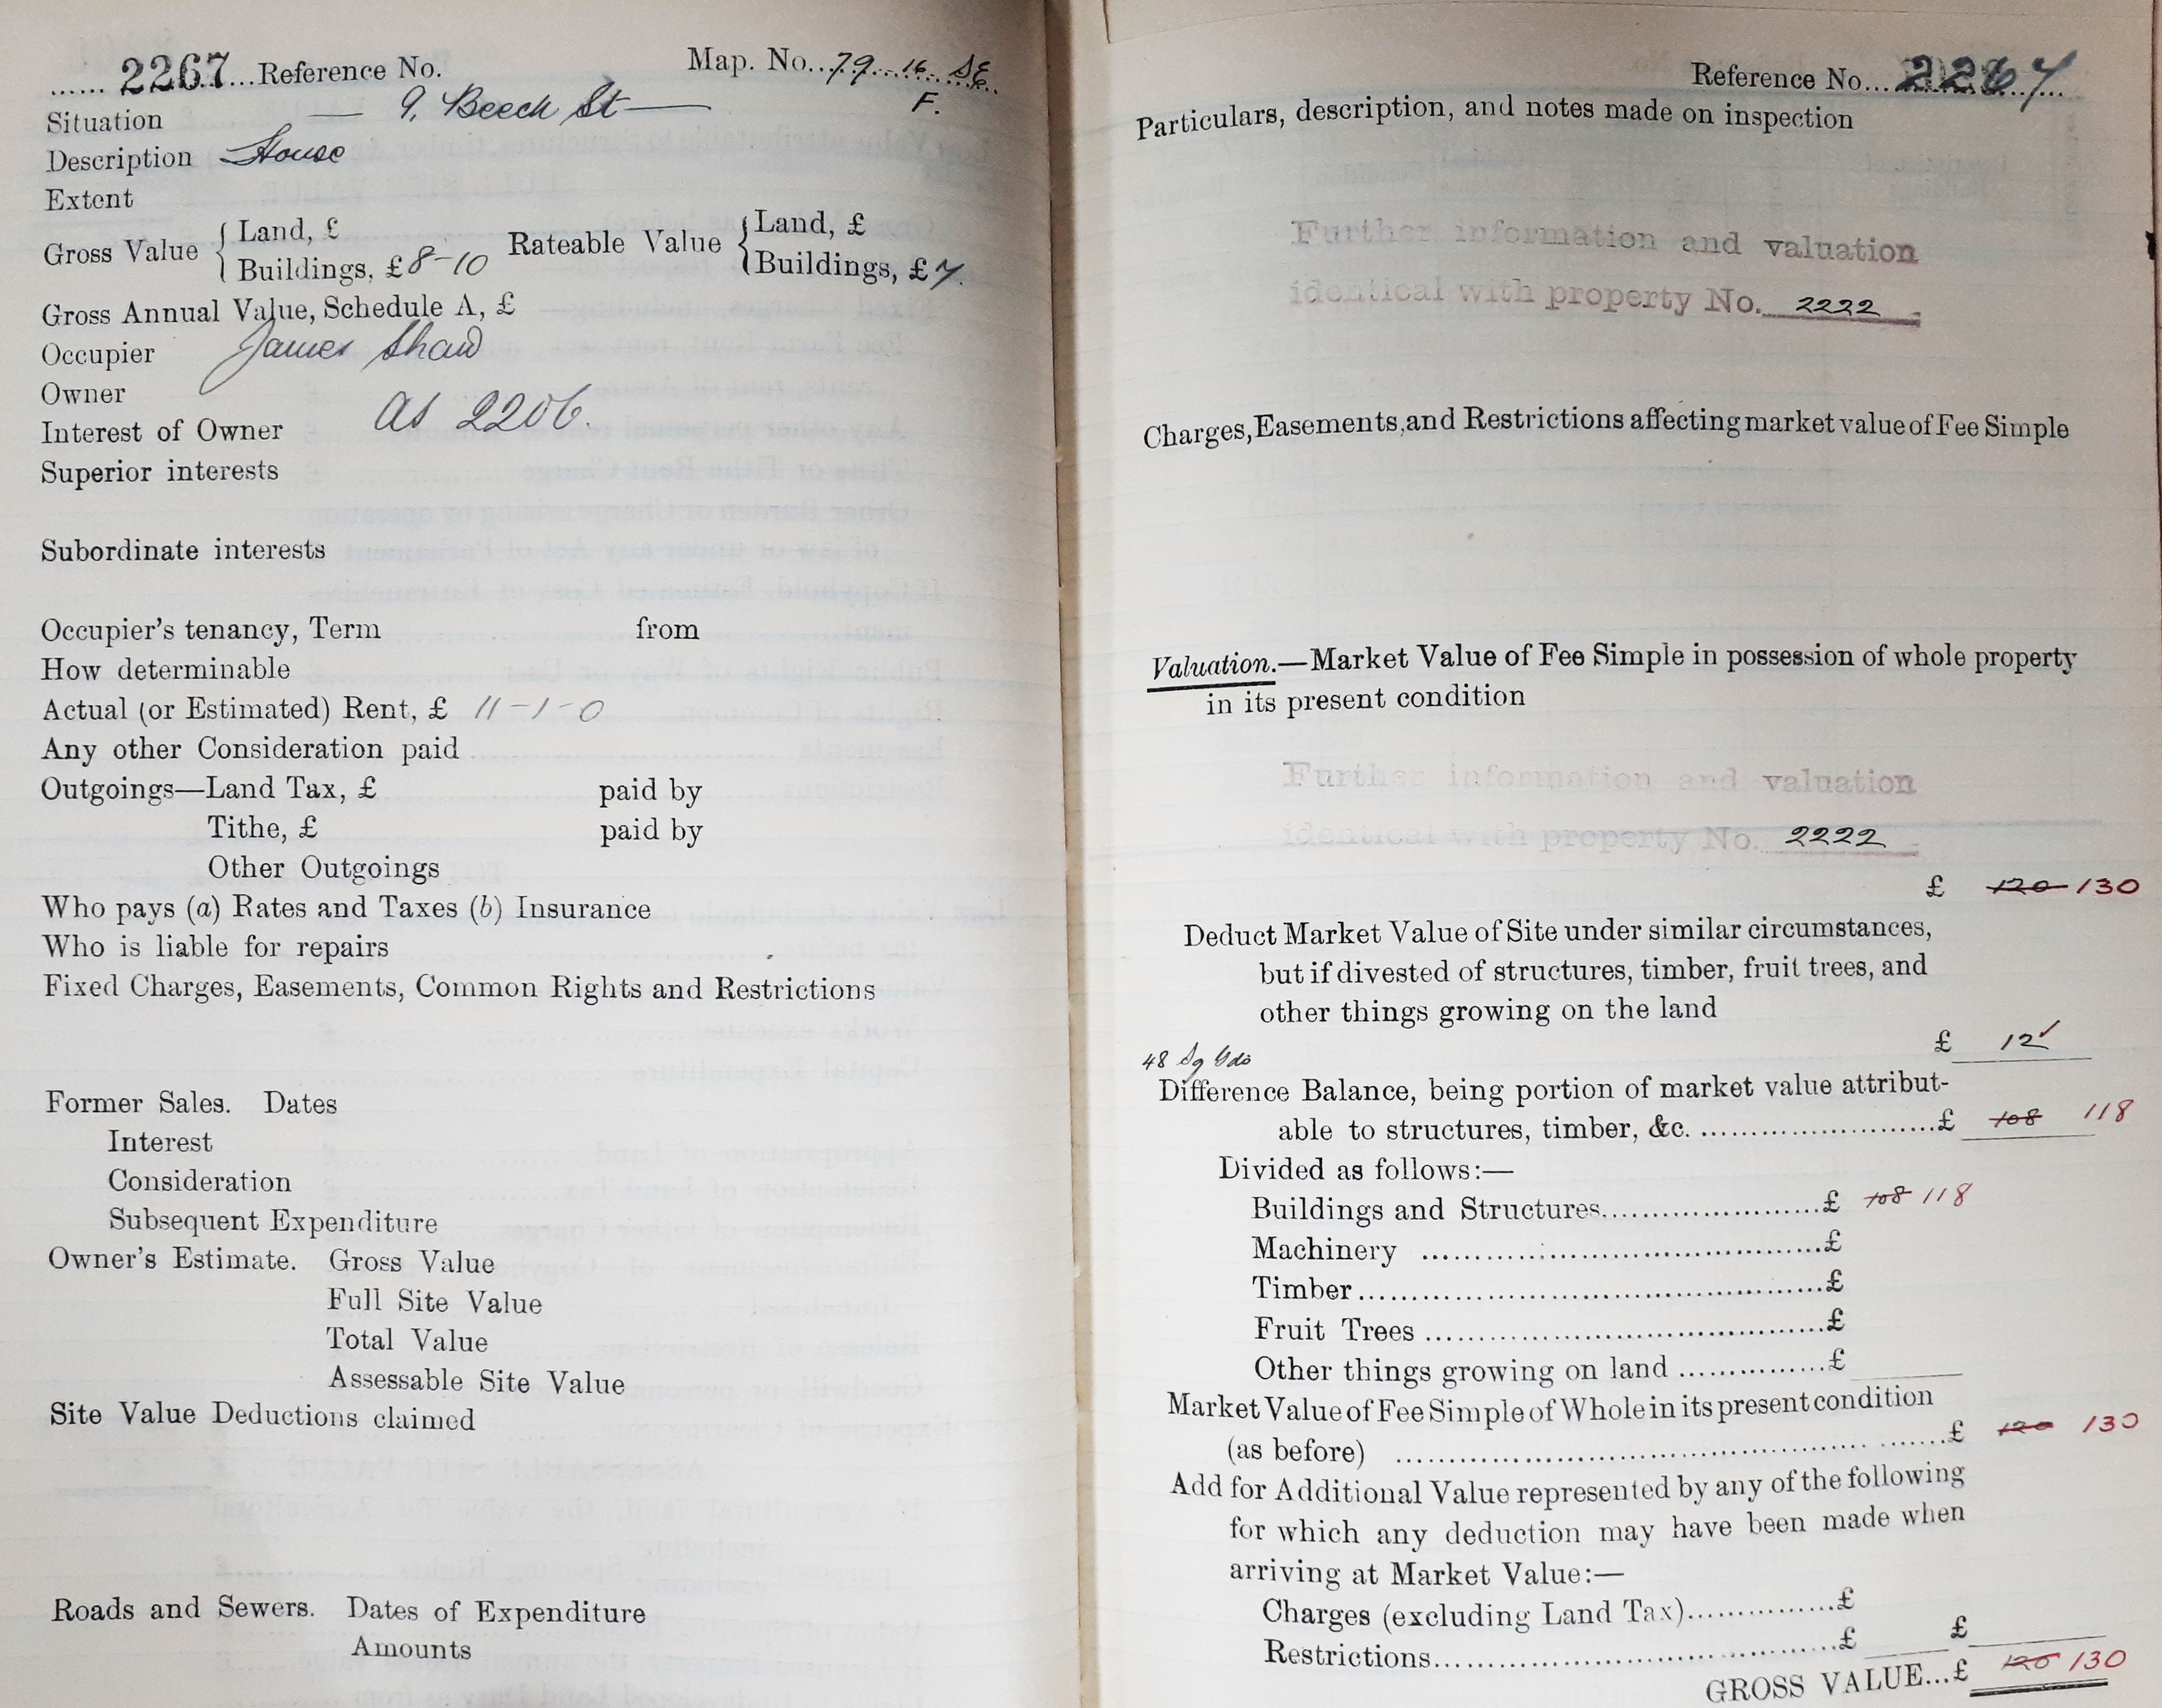 ...... 2267...Reference No. Map. No...79...16...SE
F.
Situation — 9, Beech St —
Description House
Extent
Gross Value { Land, £ Rateable Value { Land, £
Buildings, £8-10 Buildings, £7.
Gross Annual Value, Schedule A, £
Occupier James Shaw
Owner
Interest of Owner as 2206.
Superior interests
Subordinate interests
Occupier's tenancy, Term from
How determinable
Actual (or Estimated) Rent, £ 11-1-0
Any other Consideration paid
Outgoings—Land Tax, £ paid by
Tithe, £ paid by
Other Outgoings
Who pays (a) Rates and Taxes (b) Insurance
Who is liable for repairs
Fixed Charges, Easements, Common Rights and Restrictions
Former Sales. Dates
Interest
Consideration
Subsequent Expenditure
Owner's Estimate. Gross Value
Full Site Value
Total Value
Assessable Site Value
Site Value Deductions claimed
Roads and Sewers. Dates of Expenditure
Amounts
Reference No...2267...
Particulars, description, and notes made on inspection
Further information and valuation
identical with property No. 2222
Charges, Easements, and Restrictions affecting market value of Fee Simple
Valuation.—Market Value of Fee Simple in possession of whole property
in its present condition
Further information and valuation
identical with property No. 2222
£ 120 130
Deduct Market Value of Site under similar circumstances,
but if divested of structures, timber, fruit trees, and
other things growing on the land
£ 12
48 Sq Yds
Difference Balance, being portion of market value attribut-
able to structures, timber, &c. ...........................£ 108 118
Divided as follows:—
Buildings and Structures.........................£ 108 118
Machinery .............................................£
Timber....................................................£
Fruit Trees .............................................£
Other things growing on land ................£
Market Value of Fee Simple of Whole in its present condition
(as before) .....................................................£ 120 130
Add for Additional Value represented by any of the following
for which any deduction may have been made when
arriving at Market Value:—
Charges (excluding Land Tax)................£
Restrictions.............................................£ £
GROSS VALUE...£ 120 130